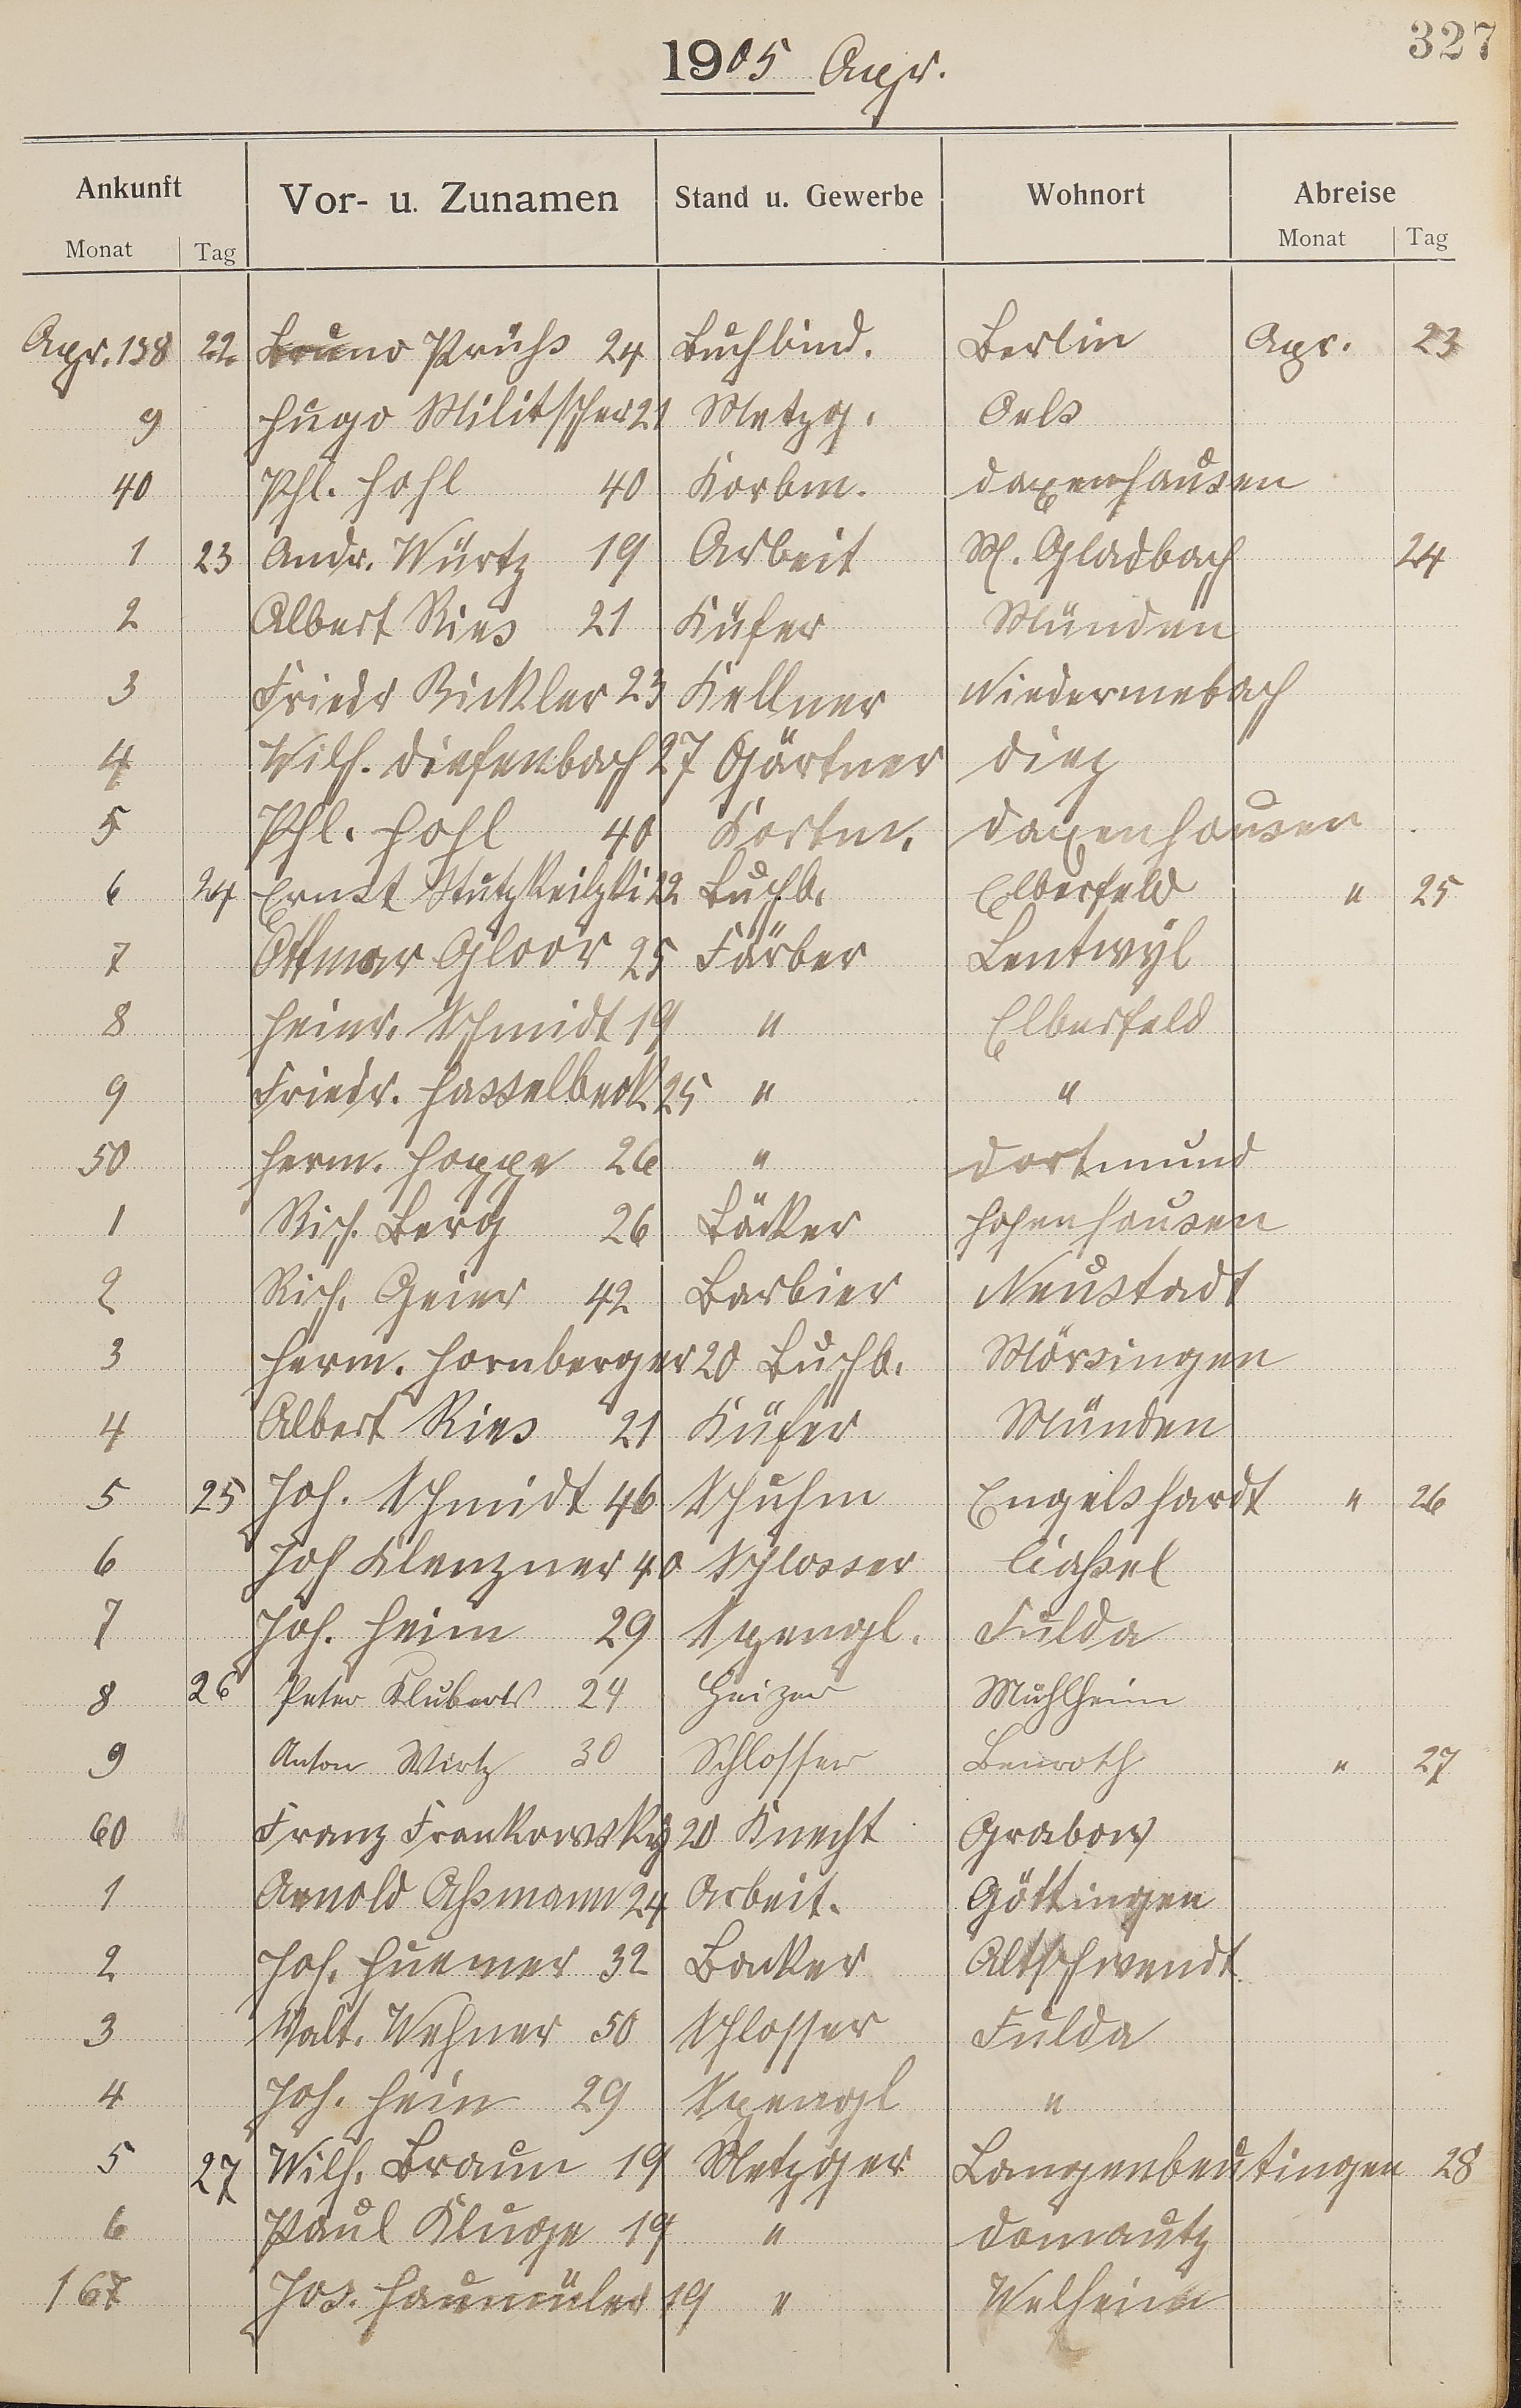 327
1905 Apr.
Ankunft Vor- u. Zunamen Stand u. Gewerbe Wohnort Abreise
Monat Tag Monat Tag
Apr. 138 22 Bruno Prühs 24 Buchbind. Berlin Apr. 23
9 Hugo Militscher 21 Metzg. Oels
40 Phl. Hohl 40 Korbm. Daxenhausen
1 23 Andr. Würtz 19 Arbeit M. Gladbach 24
2 Albert Ries 21 Küfer Münden
3 Friedr Bickler 23 Kellner Niedermebach
4 Wilh. Diefenbach 27 Gärtner Diez
5 Phl. Hohl 40 Korbm. Daxenhausen
6 24 Ernst 22 Buchb. Elberfeld " 25
7 Ottmar Gloor 25 Färber Lentwyl
8 Heinr. Schmidt 19 " Elberfeld
9 Friedr. Hasselbeck 25 " "
50 Herm. Hoppe 26 " Dortmund
1 Rich. Berg 26 Bäcker Hohenhausen
2 Rich. Geier 42 Barbier Neustadt
3 Herm. Hornberger 20 Buchb. Mörsingen
4 Albert Ries 21 Küfer Münden
5 25 Joh. Schmidt 46 Schuhm Engelshardt " 26
6 Joh Klenzner 40 Schlosser Caßel
7 Joh. Heim 29 Spengl. Fulda
8 26 Peter Kluberts 24 Heizer Mühlheim
9 Anton Wirtz 30 Schlosser Benroth " 27
60 Franz Frankowsky 20 Knecht Grabow
1 Arnold Aßmann 24 Arbeit. Göttingen
2 Joh. Huemer 32 Backer Altschwendt
3 Valt. Wehner 50 Schlosser Fulda
4 Joh. Hein 29 Spengl "
5 27 Wilh. Braun 19 Metzger Langenbeutingen 28
6 Paul Kluge 19 " Domautz
167 Jos. Haumüler 19 " Welheim